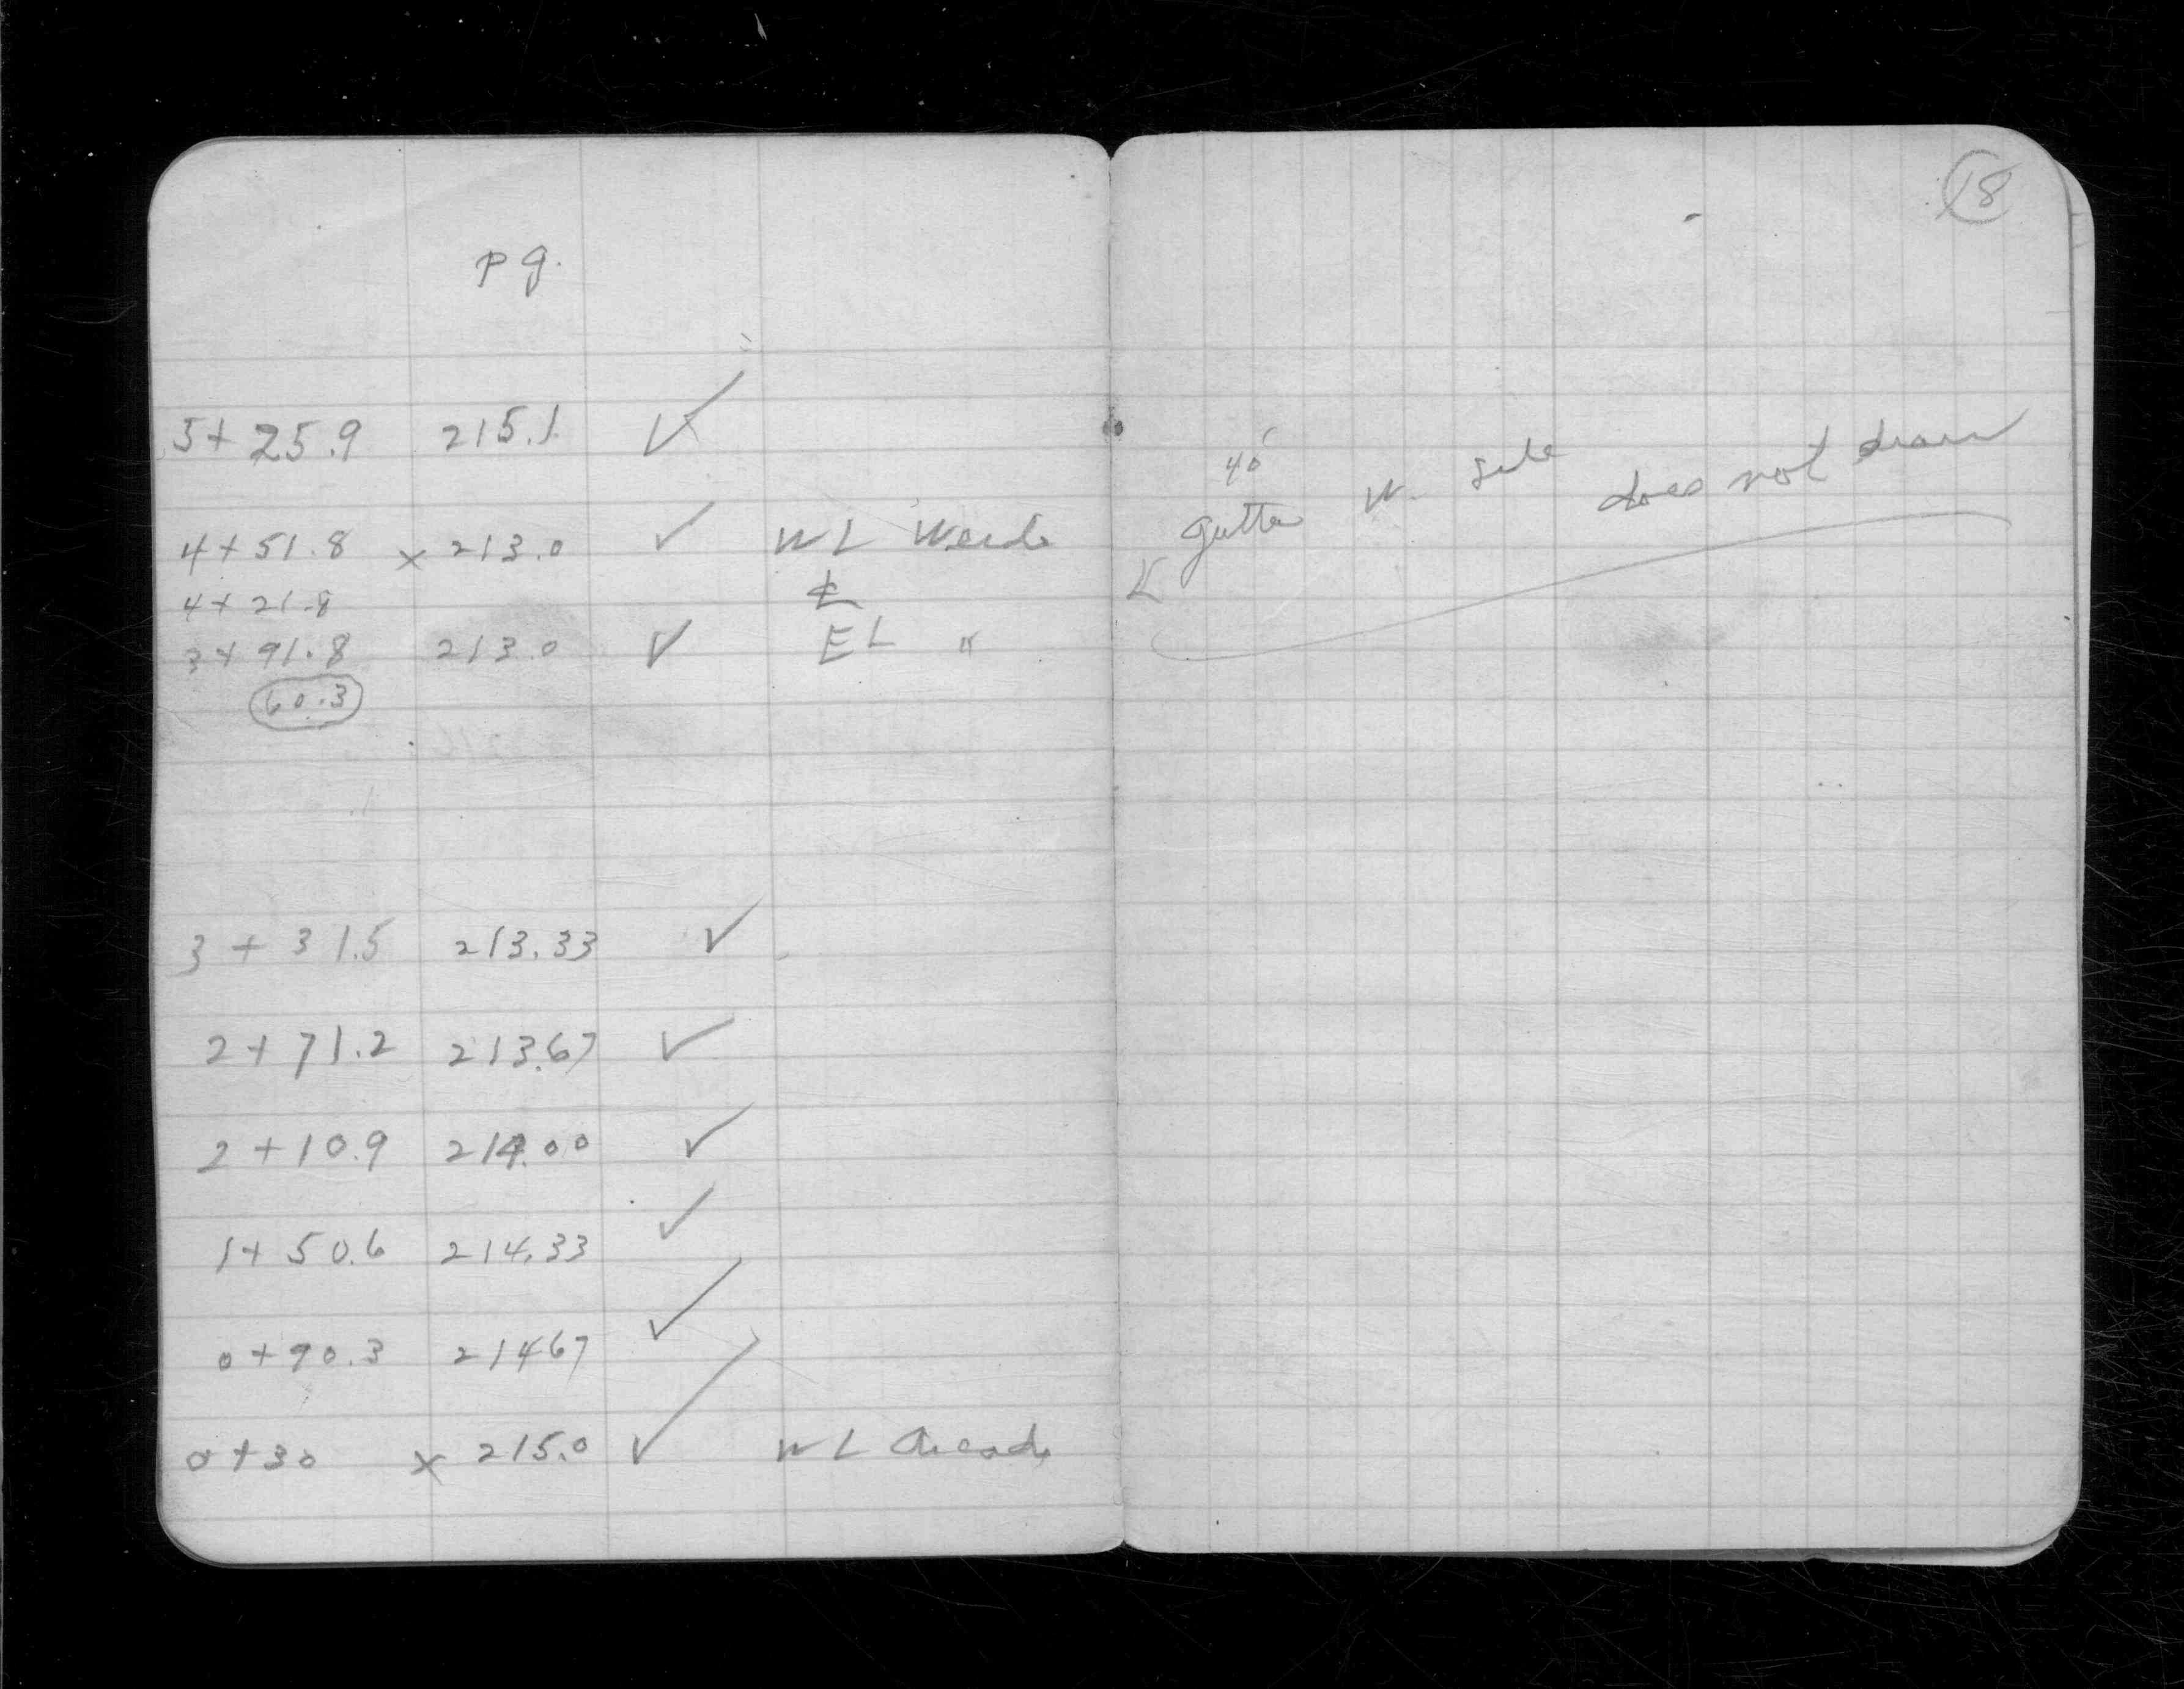 pg.
5+25.9 215.1 ✓
4+51.8 x 213.0 ✓ WL
4+21.8 ℄
3+91.8 213.0 ✓ EL "
60.3
3+31.5 213.33 ✓
2+71.2 213.67 ✓
2+10.9 214.00 ✓
1+50.6 214.33 ✓
0+90.3 21467 ✓
0+30 x 215.0 ✓ WL Arcade
18
40'
gutter W. side does not drain